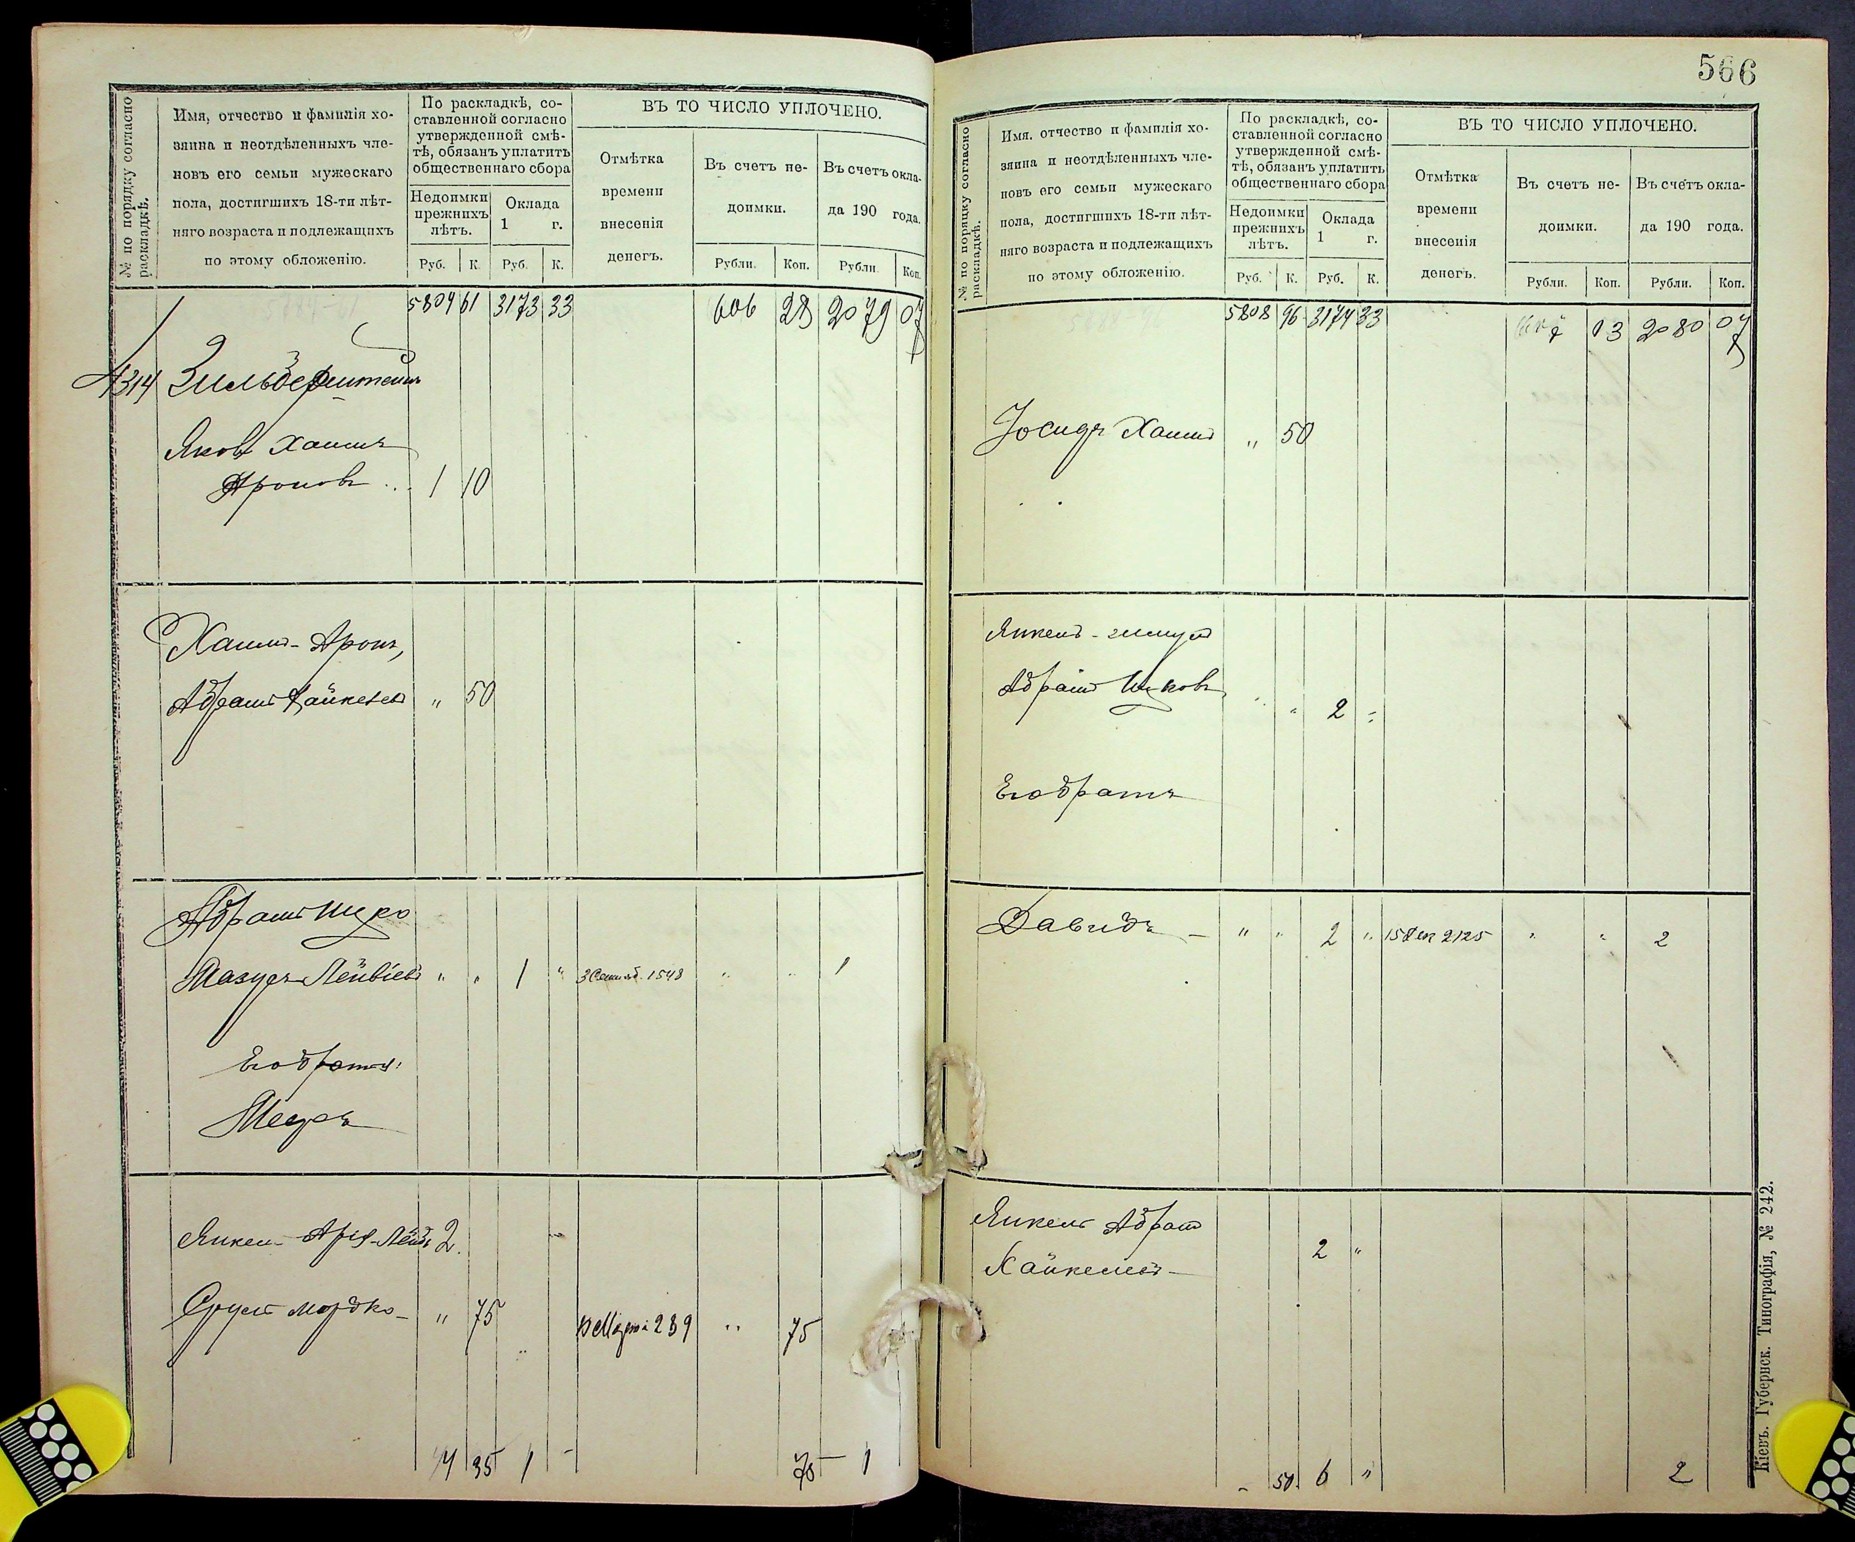 № по порядку согласно раскладкѣ.
Имя, отчество и фамилія хо-
зяина и неотдѣленныхъ чле-
новъ его семьи мужескаго
пола, достигшихъ 18-ти лѣт-
няго возраста и подлежащихъ
по этому обложенію.
По раскладкѣ, со-
ставленной согласно
утвержденной смѣ-
тѣ, обязанъ уплатить
общественнаго сбора
Недоимки
прежнихъ
лѣтъ.
Оклада
1 г.
Руб. К. Руб. К.
ВЪ ТО ЧИСЛО УПЛОЧЕНО.
Отмѣтка
времени
внесенія
денегъ.
Въ счетъ не-
доимки.
Рубли. Коп.
Въ счетъ окла-
да 190 года.
Рубли. Коп.
5804 61 3173 33 606 28 2079 07
4314 Зильберштейнъ
Яковъ Хаимъ
Ароновъ 1 10
Хаимъ-Аронъ,
Абрамъ Хайкелев " 50
Абрамъ Шуро
Мазуръ Лейвіевъ " " 1 " 3 Сентяб. 1548 " " 1
Его братъ:
Мееръ
Янкель Арія-Лейбъ 2 -
Сруль Мордко " 75 239 " 75
4 35 1 - 75 1
566
№ по порядку согласно раскладкѣ.
Имя, отчество и фамилія хо-
зяина и неотдѣленныхъ чле-
новъ его семьи мужескаго
пола, достигшихъ 18-ти лѣт-
няго возраста и подлежащихъ
по этому обложенію.
По раскладкѣ, со-
ставленной согласно
утвержденной смѣ-
тѣ, обязанъ уплатить
общественнаго сбора
Недоимки
прежнихъ
лѣтъ.
Оклада
1 г.
Руб. К. Руб. К.
ВЪ ТО ЧИСЛО УПЛОЧЕНО.
Отмѣтка
времени
внесенія
денегъ.
Въ счетъ не-
доимки.
Рубли. Коп.
Въ счетъ окла-
да 190 года.
Рубли. Коп.
5808 96 3174 33 03 2080 07
Іосифъ Хаимъ " 50
Янкель
Абрамъ Ицковъ " " 2 "
Его братъ
Давидъ - " " 2 " 15 Дек 2125 " " 2
Янкель Абрам
Хайкелевъ 2 "
- 50 6 " 2
Кіевъ. Губернск. Типографія, № 242.